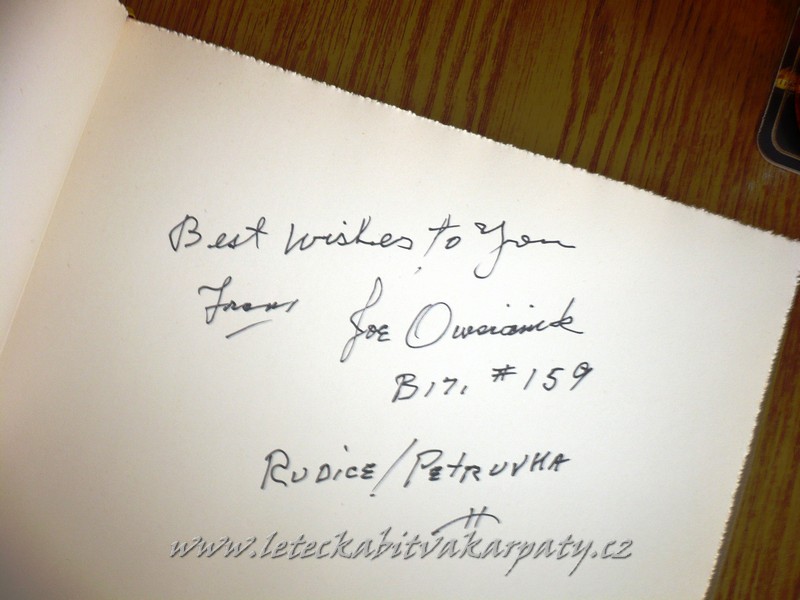 Best Wishes to You
From Joe Owsianik
B17, #159
RUDICE/PETRUVKA
www.leteckabitvakarpaty.cz